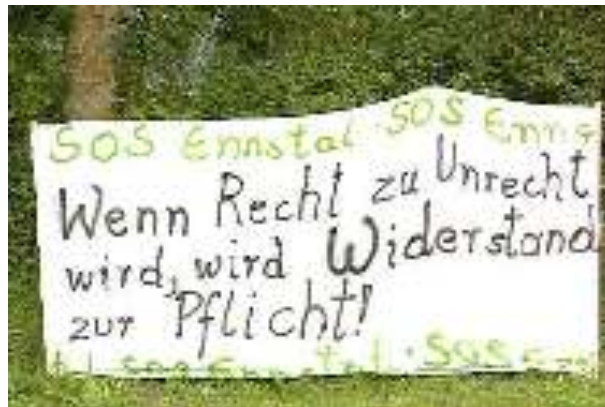 SOS Ennstal · SOS Enns
Wenn Recht zu Unrecht
wird, wird Widerstand
zur Pflicht!
SOS Ennstal · SOS